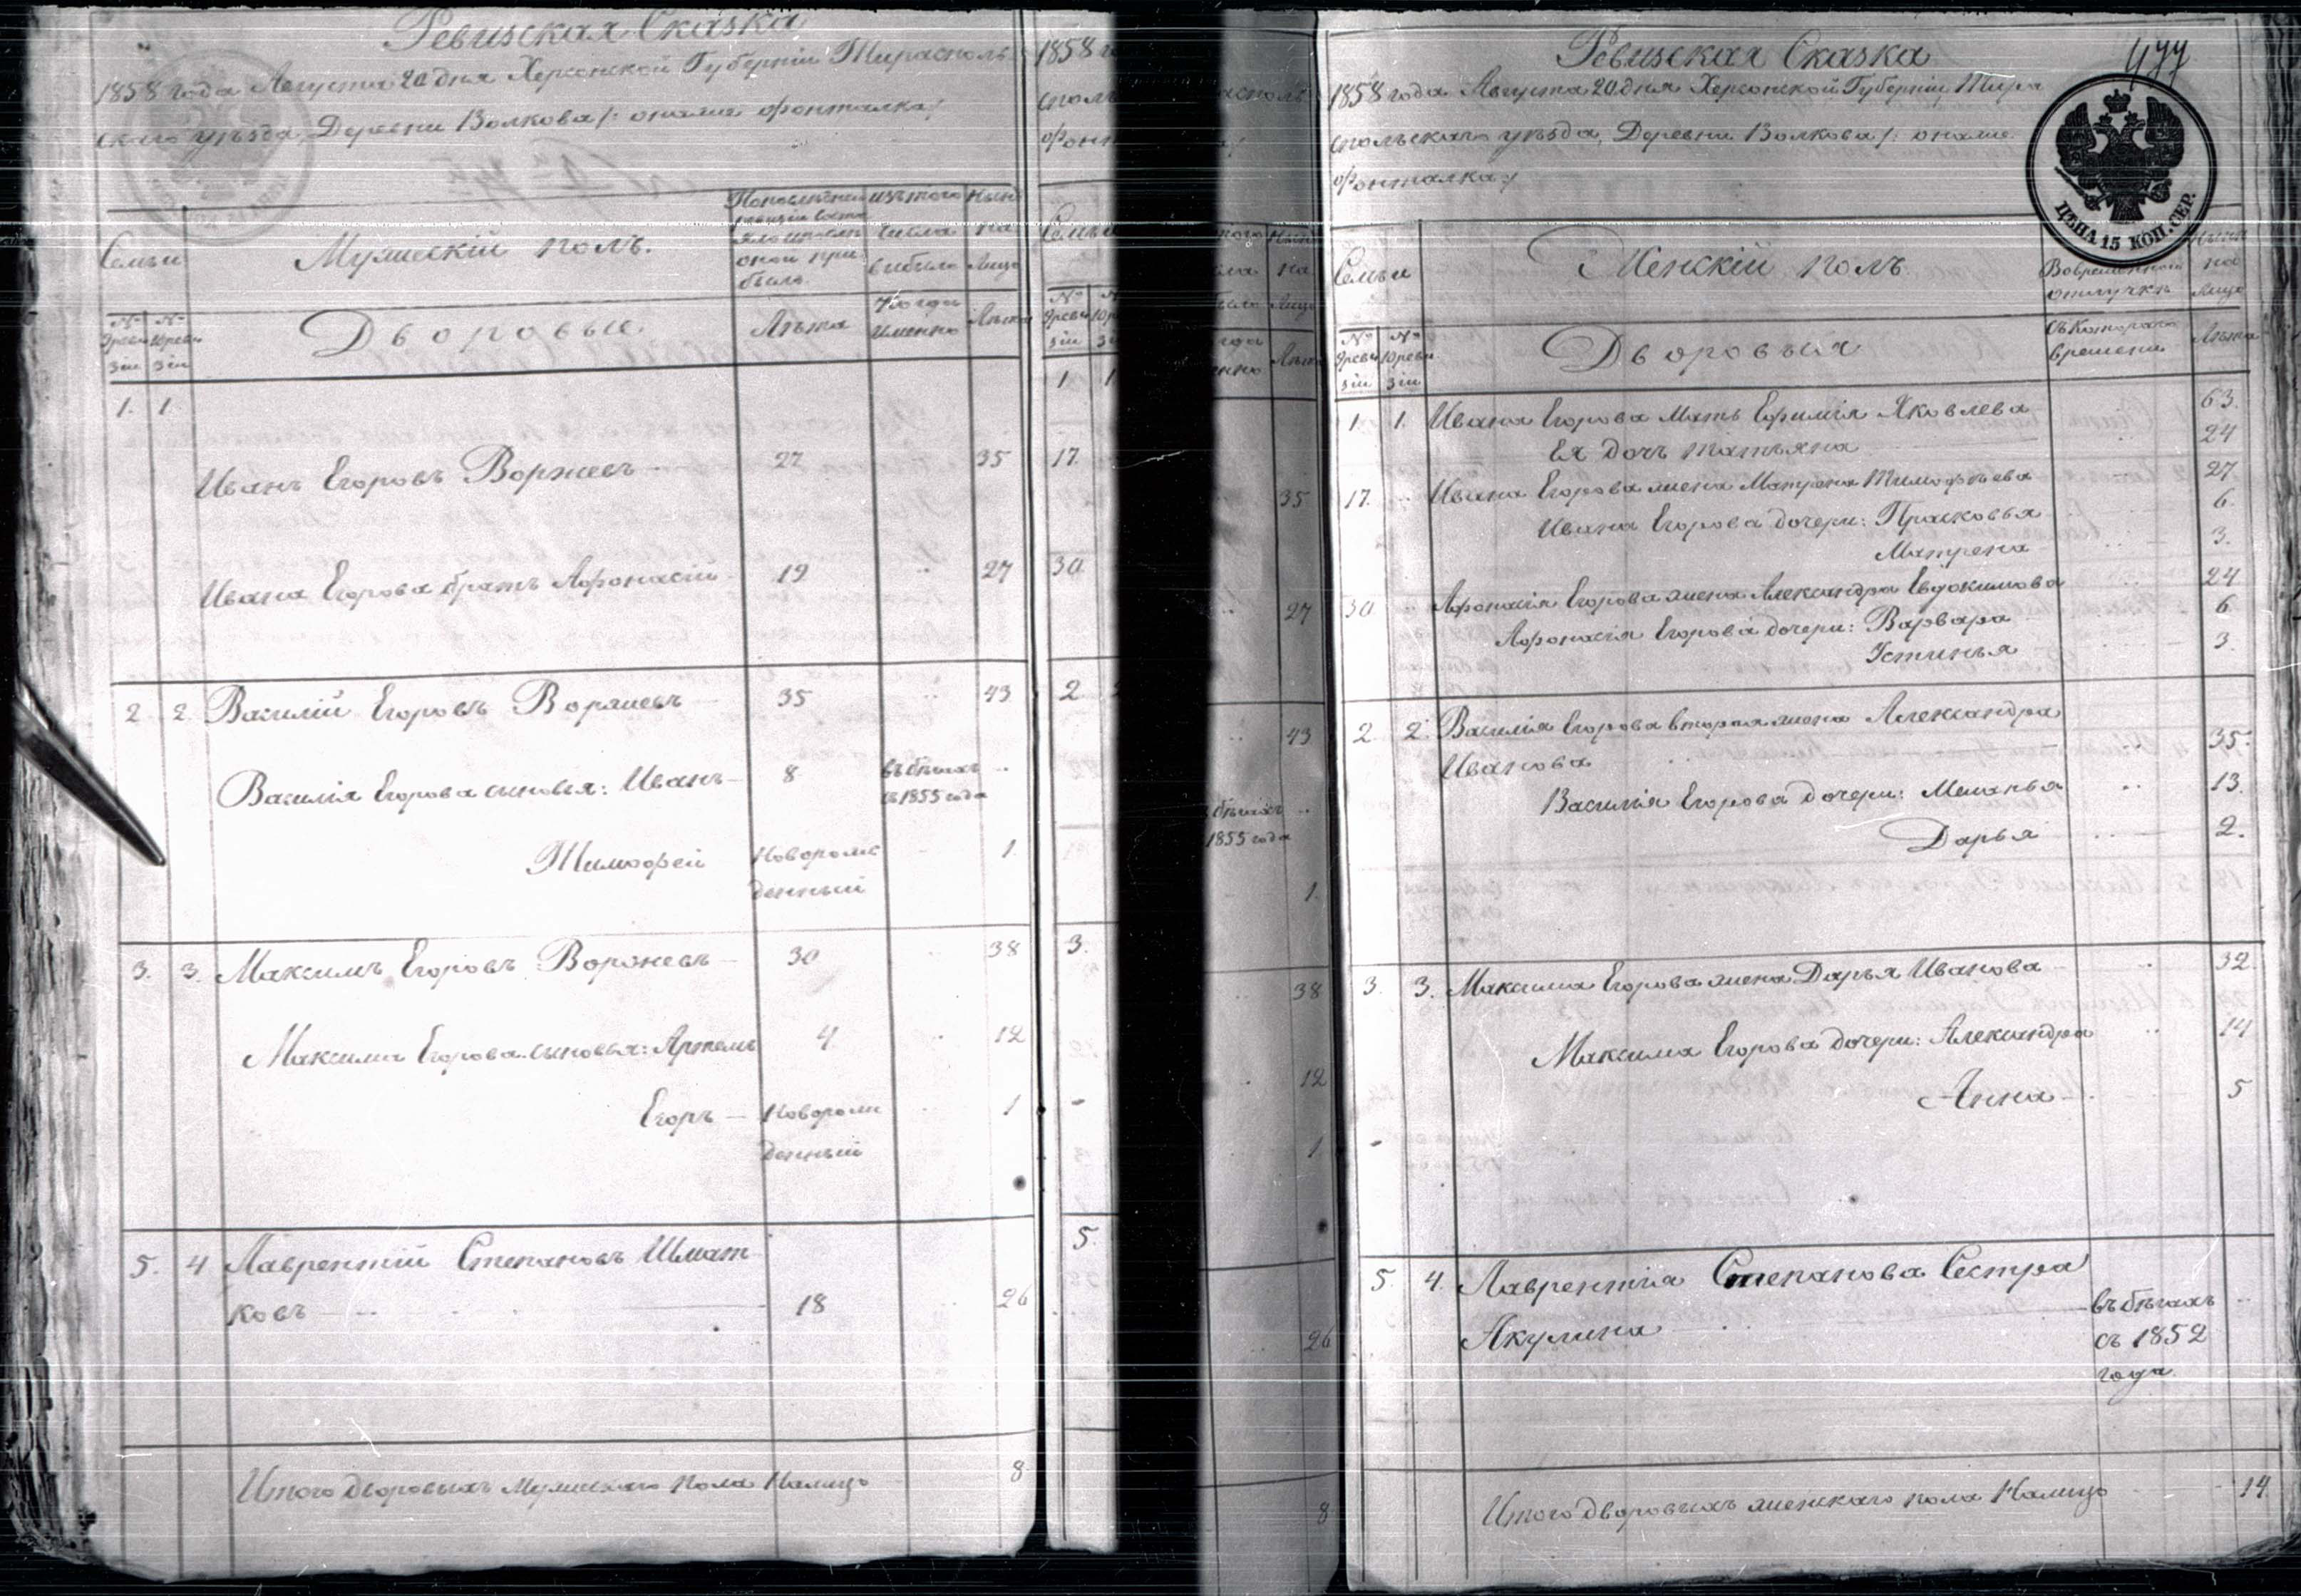 Ревизская Сказка
1858 года Августа 20 дня Херсонской Губерніи Тирасполь
скаго уѣзда, Деревни Волкова /: онаже Фонталка /
Семьи
Мужескій полъ.
По последней
ревизіи состо
яло и посл
оной при
было
изъ того
числа
выбыло
Нынѣ
на
Лицо
№ 9 реви
зіи
№ 10 реви
зіи
Дворовые.
Лѣта
Когда
именно
Лѣта
1. 1.
Иванъ Егоровъ Воржеевъ 27 35
Ивана Егорова братъ Афонасій 19 27
2. 2. Василій Егоровъ Воржеевъ 35 43
Василія Егорова сыновья: Иванъ 8 въ бѣгахъ
съ 1855 года
Тимофей новорож 1.
денный
3. 3. Максимъ Егоровъ Воржеевъ 30 38
Максима Егорова сыновья: Артемъ 4 12
Егоръ — новорож 1
денный
5. 4 Лаврентій Степановъ Шмат
ковъ 18 26
Итого дворовыхъ мужескаго пола налицо 8
1858 г
споль
Фонт
Семьи
1 1
17.
30
2
3.
5.
35
27
43
бѣгахъ
1855 года
1.
38
12
1
26
8
477
Ревизская Сказка
1858 года Августа 20 дня Херсонской Губерніи, Тира
спольскаго уѣзда, Деревни Волкова /: онаже
Фонталка /
ЦѢНА 15 КОП. СЕР.
Семьи
Женскій полъ.
Во временной
отлучкѣ
Нынѣ
на
Лицо
№ 9 реви
зіи
№ 10 реви
зіи
Дворовыя
Съ котораго
времени
Лѣта
1. 1. Ивана Егорова Мать Ефимія Яковлева 63.
Ея дочь Татьяна 24
17. Ивана Егорова жена Матрена Тимофѣева 27
Ивана Егорова дочери: Прасковья 6.
Матрена 3.
30 Афонасія Егорова жена Александра Евдокимова 24
Афонасія Егорова дочери: Варвара 6
Устинья 3.
2 2. Василія Егорова вторая жена Александра
Иванова 35.
Василія Егорова дочери: Меланья 13.
Дарья 2.
3. 3. Максима Егорова жена Дарья Иванова 32.
Максима Егорова дочери: Александра 14
Анна 5
5. 4. Лаврентія Степанова Сестра
Акулина въ бѣгахъ
съ 1852
года
Итого дворовыхъ женскаго пола налицо 14